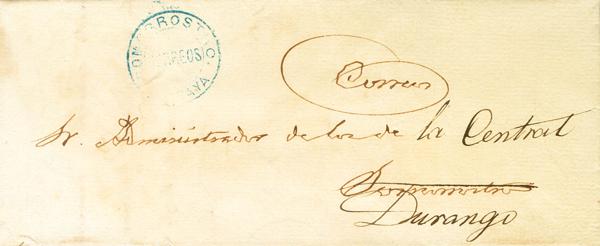 SOMORROSTRO.
CORREOS
VIZCAYA
Correos
Sr. Administrador de los de la Central
Durango